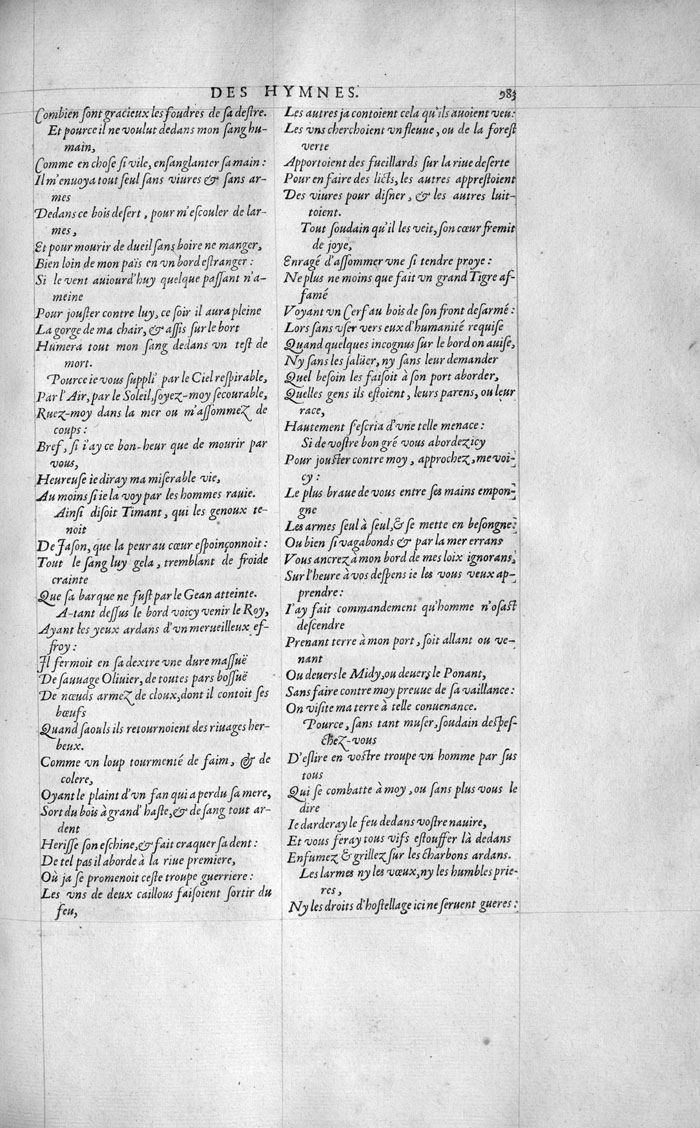 DES HYMNES. 983
Combien sont gracieux les foudres de sa destre.
Et pource il ne voulut dedans mon sang hu-
main,
Comme en chose si vile, ensanglanter sa main :
Il m'enuoya tout seul sans viures & sans ar-
mes
Dedans ce bois desert, pour m'escouler de lar-
mes,
Et pour mourir de dueil sans boire ne manger,
Bien loin de mon païs en vn bord estranger :
Si le vent auiourd'huy quelque passant n'a-
meine
Pour jouster contre luy, ce soir il aura pleine
La gorge de ma chair, & assis sur le bort
Humera tout mon sang dedans vn test de
mort.
Pource ie vous suppli' par le Ciel respirable,
Par l'Air, par le Soleil, soyez-moy secourable,
Ruez-moy dans la mer ou m'assommez de
coups :
Bref, si i'ay ce bon-heur que de mourir par
vous,
Heureuse ie diray ma miserable vie,
Au moins si ie la voy par les hommes rauie.
Ainsi disoit Timant, qui les genoux te-
noit
De Jason, que la peur au cœur espoinçonnoit :
Tout le sang luy gela, tremblant de froide
crainte
Que sa barque ne fust par le Gean atteinte.
A-tant dessus le bord voicy venir le Roy,
Ayant les yeux ardans d'vn merueilleux ef-
froy :
Il fermoit en sa dextre vne dure massuë
De sauuage Oliuier, de toutes pars bossuë
De nœuds armez de cloux, dont il contoit ses
bœufs
Quand saouls ils retournoient des riuages her-
beux.
Comme vn loup tourmenté de faim, & de
colere,
Oyant le plaint d'vn fan qui a perdu sa mere,
Sort du bois à grand' haste, & de sang tout ar-
dent
Herisse son eschine, & fait craquer sa dent :
De tel pas il aborde à la riue premiere,
Où ja se promenoit ceste troupe guerriere :
Les vns de deux caillous faisoient sortir du
feu,
Les autres ja contoient cela qu'ils auoient veu :
Les vns cherchoient vn fleuue, ou de la forest
verte
Apportoient des fueillards sur la riue deserte
Pour en faire des licts, les autres apprestoient
Des viures pour disner, & les autres luit-
toient.
Tout soudain qu'il les veit, son cœur fremit
de joye,
Enragé d'assommer vne si tendre proye :
Ne plus ne moins que fait vn grand Tigre af-
famé
Voyant vn Cerf au bois de son front desarmé :
Lors sans vser vers eux d'humanité requise
Quand quelques incognus sur le bord on auise,
Ny sans les salüer, ny sans leur demander
Quel besoin les faisoit à son port aborder,
Quelles gens ils estoient, leurs parens, ou leur
race,
Hautement s'escria d'vne telle menace :
Si de vostre bon gré vous abordez icy
Pour jouster contre moy, approchez, me voi-
cy :
Le plus braue de vous entre ses mains empon-
gne
Les armes seul à seul, & se mette en besongne :
Ou bien si vagabonds & par la mer errans
Vous ancrez à mon bord de mes loix ignorans,
Sur l'heure à vos despens ie les vous veux ap-
prendre :
I'ay fait commandement qu'homme n'osast
descendre
Prenant terre à mon port, soit allant ou ve-
nant
Ou deuers le Midy, ou deuers le Ponant,
Sans faire contre moy preuue de sa vaillance :
On visite ma terre à telle conuenance.
Pource, sans tant muser, soudain despes-
chez-vous
D'eslire en vostre troupe vn homme par sus
tous
Qui se combatte à moy, ou sans plus vous le
dire
Ie darderay le feu dedans vostre nauire,
Et vous feray tous vifs estouffer là dedans
Enfumez & grillez sur les charbons ardans.
Les larmes ny les vœux, ny les humbles prie-
res,
Ny les droits d'hostellage ici ne seruent gueres :